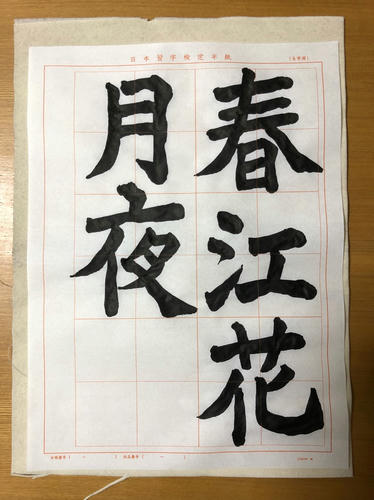 日本習字検定半紙
春江花
月夜